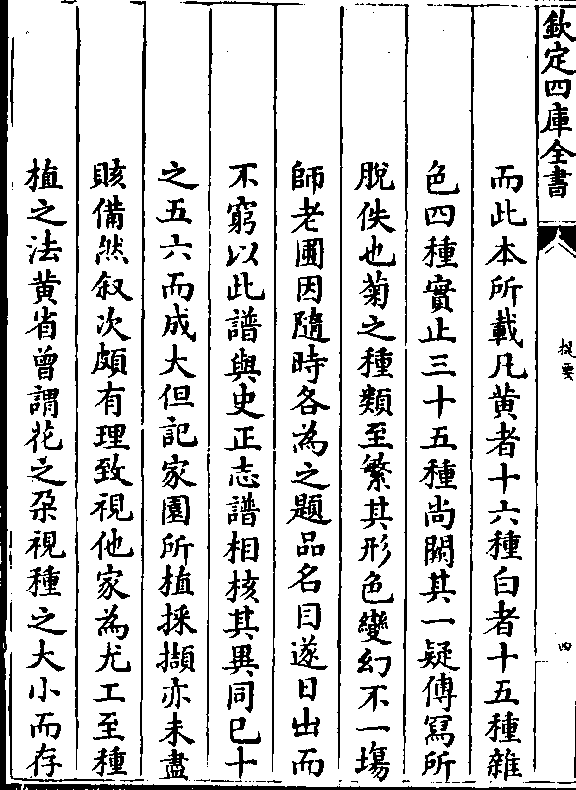 欽定四庫全書
提要
四
而此本所載凡黄者十六種白者十五種雜
色四種實止三十五種尚闕其一疑傳冩所
脫佚也菊之種類至繁其形色變幻不一塲
師老圃因隨時各為之題品名目遂日出而
不窮以此譜與史正志譜相核其異同已十
之五六而成大但記家園所植採擷亦未盡
賅備然叙次頗有理致視他家為尤工至種
植之法黄省曾謂花之朶視種之大小而存